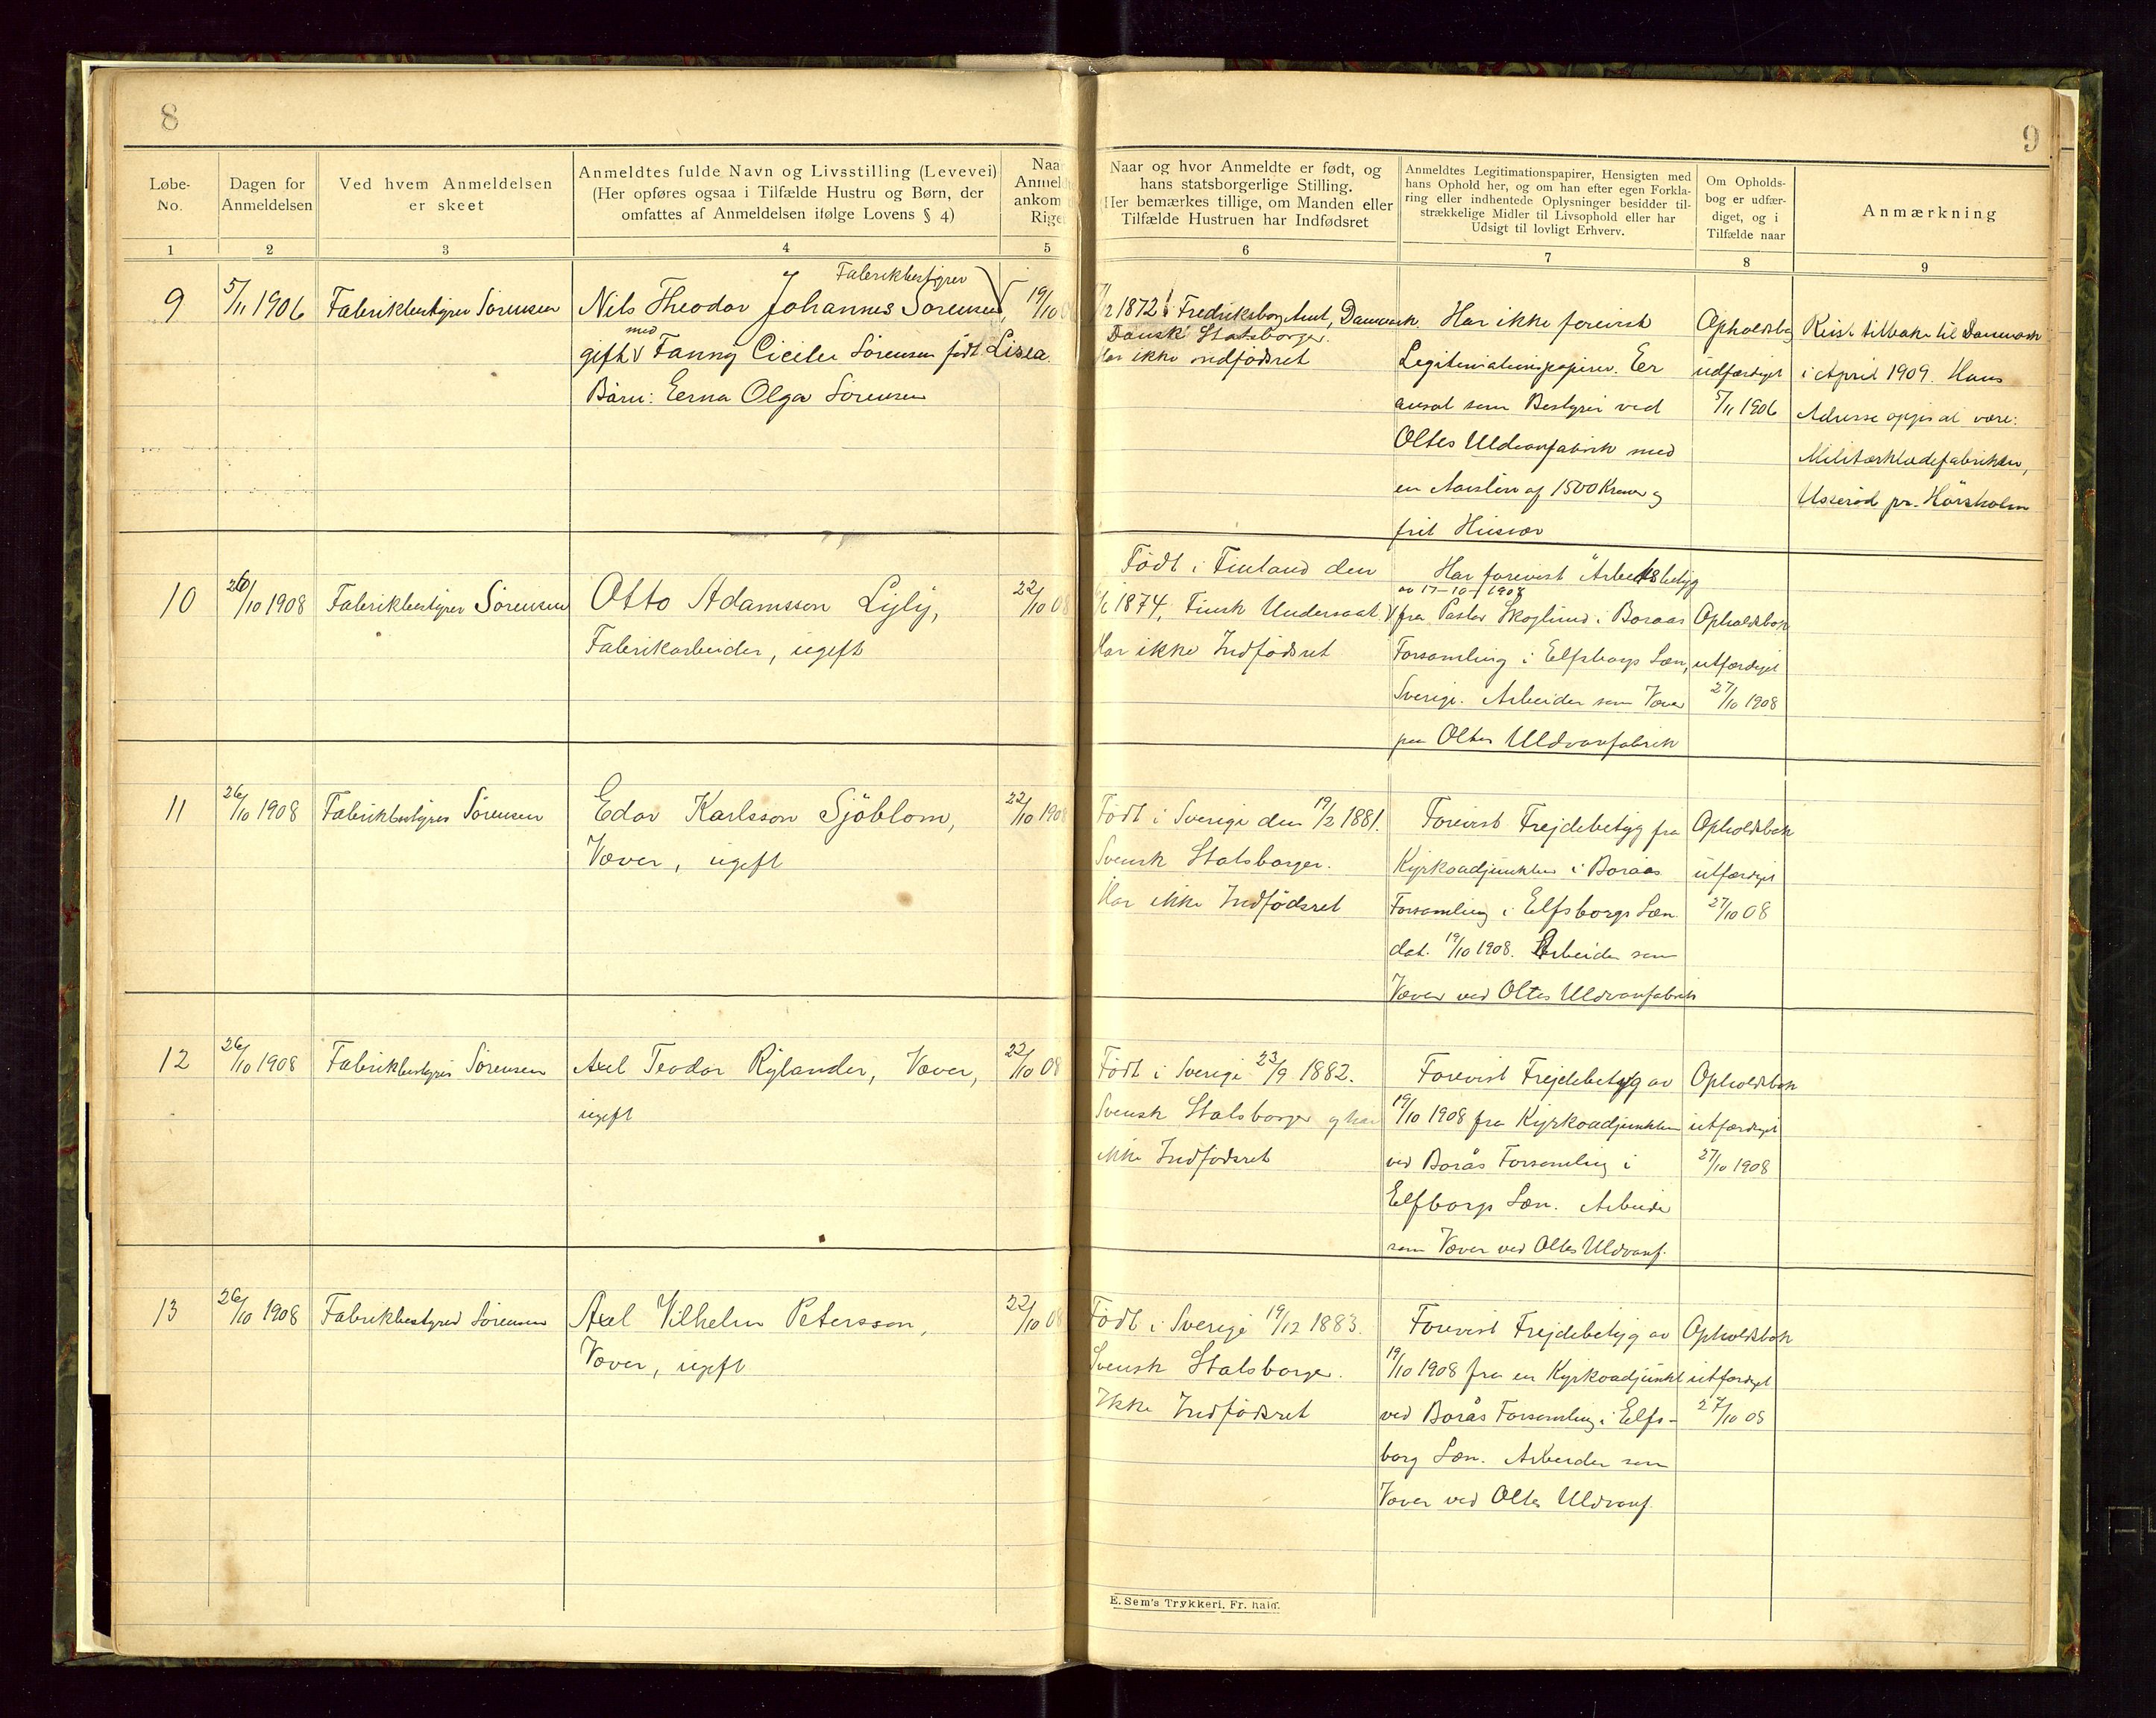 8
9
Løbe-
No.
Dagen for
Anmeldelsen
Ved hvem Anmeldelsen
er skeet
Anmeldtes fulde Navn og Livsstilling (Levevei)
(Her opføres ogsaa i Tilfælde Hustru og Børn, der
omfattes af Anmeldelsen ifølge Lovens § 4)
Naar
Anmeldt
ankom t
Riget
Naar og hvor Anmeldte er født, og
hans statsborgerlige Stilling.
Her bemærkes tillige, om Manden eller
Tilfælde Hustruen har Indfødsret
Anmeldtes Legitimationspapirer, Hensigten med
hans Ophold her, og om han efter egen Forkla-
ring eller indhentede Oplysninger besidder til-
strækkelige Midler til Livsophold eller har
Udsigt til lovligt Erhverv.
Om Opholds-
bog er udfær-
diget, og i
Tilfælde naar
Anmærkning
1
2
3
4
5
6
7
8
9
9
5/11 1906
Fabrikbestyrer Sørensen
Fabrikbestyrer
Nils Theodor Johannes Sørensen,
gift med Fanny Cicilie Sørensen født Lisea.
Børn: Erna Olga Sörensen
19/10
/2 1872 i Fredriksborg Amt, Danmark.
Dansk Statsborger.
Har ikke indfødsret
Har ikke forevist
Legitimationspapirer. Er
ansat som Bestyrer ved
Oltes Uldvarefabrik med
en Aarsløn af 1500 Kroner og
frit Husvær
Opholdsbog
udfærdiget
5/11 1906
Reist tilbake til Danmark
i April 1909. Hans
Adresse opgis at være:
Militærklædefabrikken,
Usserød pr. Hørsholm
10
26/10 1908
Fabrikbestyrer Sørensen
Otto Adamsson Lyly,
Fabrikarbeider, ugift
22/10 08
Født i Finland den
1874. Finsk Undersaat
Har ikke Indfødsret
Har forevist "Arbetsbetyg
av 17-10-1908
fra Pastor Skoglund i Boraas
Forsamling i Elfsborgs Læn,
Sverige. Arbeider som Væver
paa Oltes Uldvarefabrik
Opholdsbok
utfærdiget
27/10 1908
11
26/10 1908
Fabrikbestyrer Sørensen
Edor Karlsson Sjöblom,
Væver, ugift
22/10 1908
Født i Sverige den 19/2 1881.
Svensk Statsborger.
Har ikke Indfødsret
Forevist Frejdebetyg fra
Kyrkoadjunkten i Boraas
Forsamling i Elfsborgs Læn
dat. 19/10 1908. Arbeider som
Væver ved Oltes Uldvarefabrik
Opholdsbok
utfærdiget
27/10 08
12
26/10 1908
Fabrikbestyrer Sørensen
Axel Teodor Rylander, Væver,
ugift
22/10 08
Født i Sverige 23/9 1882.
Svensk Statsborger og har
ikke Indfødsret
Forevist Frejdebetyg av
19/10 1908 fra Kyrkoadjunkten
ved Borås Forsamling i
Elfborgs Læn. Arbeider
som Væver ved Oltes Uldvaref.
Opholdsbok
utfærdiget
27/10 1908
13
26/10 1908
Fabrikbestyrer Sørensen
Axel Vilhelm Petersson,
Væver, ugift
22/10 08
Født i Sverige 19/12 1883.
Svensk Statsborger.
Ikke Indfødsret
Forevist Frejdebetyg av
19/10 1908 fra en Kyrkoadjunkt
ved Borås Forsamling i Elfs-
borg Læn. Arbeider som
Væver ved Oltes Uldvaref.
Opholdsbok
utfærdiget
27/10 08
E. Sem's Trykkeri, Fr. hald.